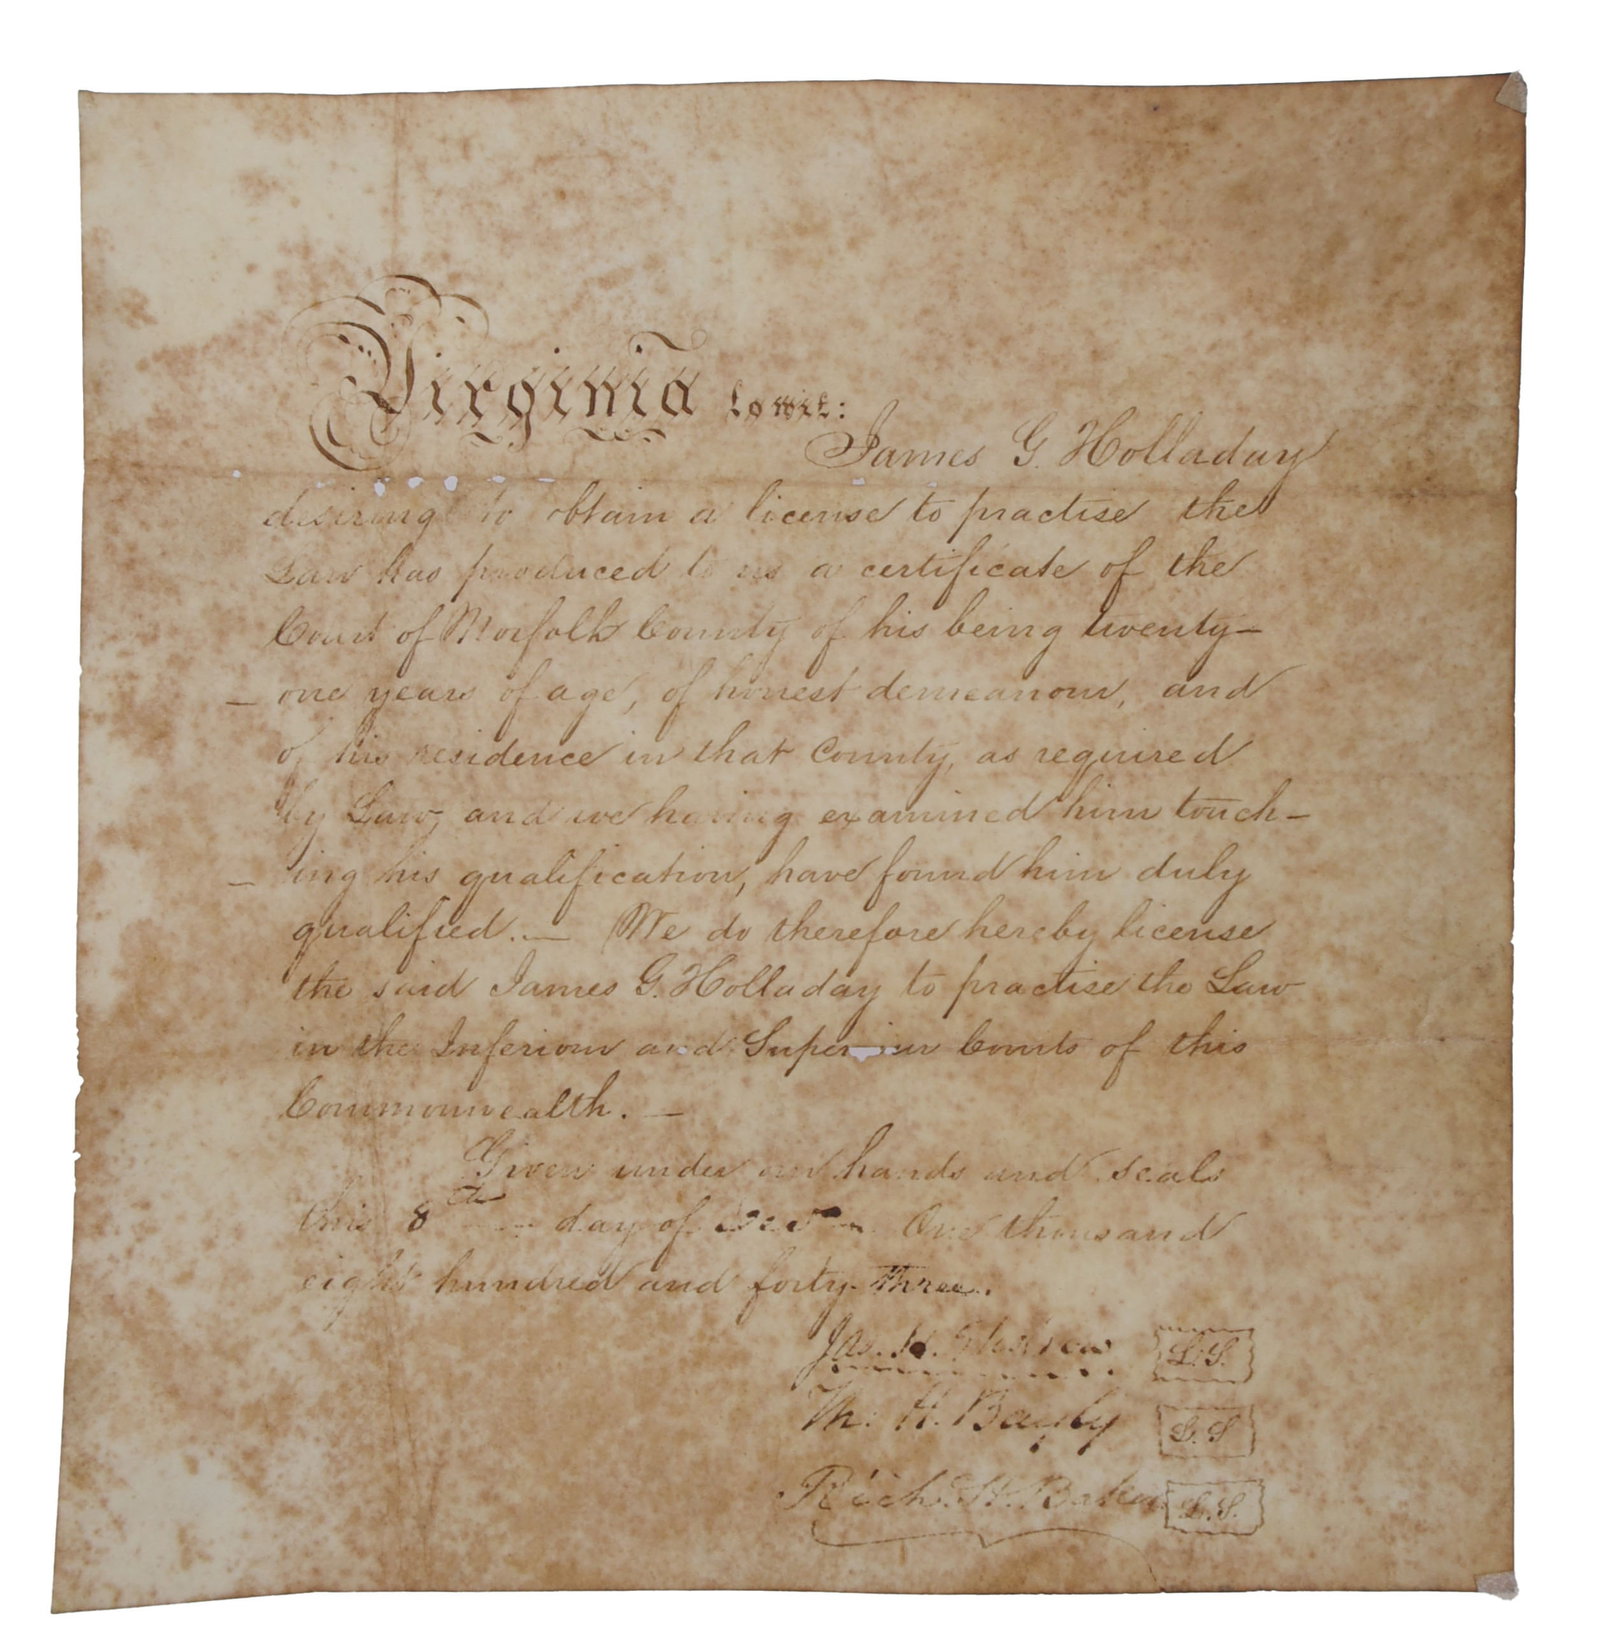 Virginia towit:
James G. Holladay
desiring to obtain a license to practise the
Law has produced to us a certificate of the
Court of Norfolk County of his being twenty-
- one years of age, of honest demeanour, and
of his residence in that County, as required
by Law, and we having examined him touch-
- ing his qualification, have found him duly
qualified.— We do therefore hereby license
the said James G. Holladay to practise the Law
in the Inferiour and Superiour Courts of this
Commonwealth. —
Given under our hands and seals
this 8th day of One thousand
eight hundred and forty-three.
Jas. H. L.S.
Th: H. Bayly L.S
Rich. H. Baker L.S.